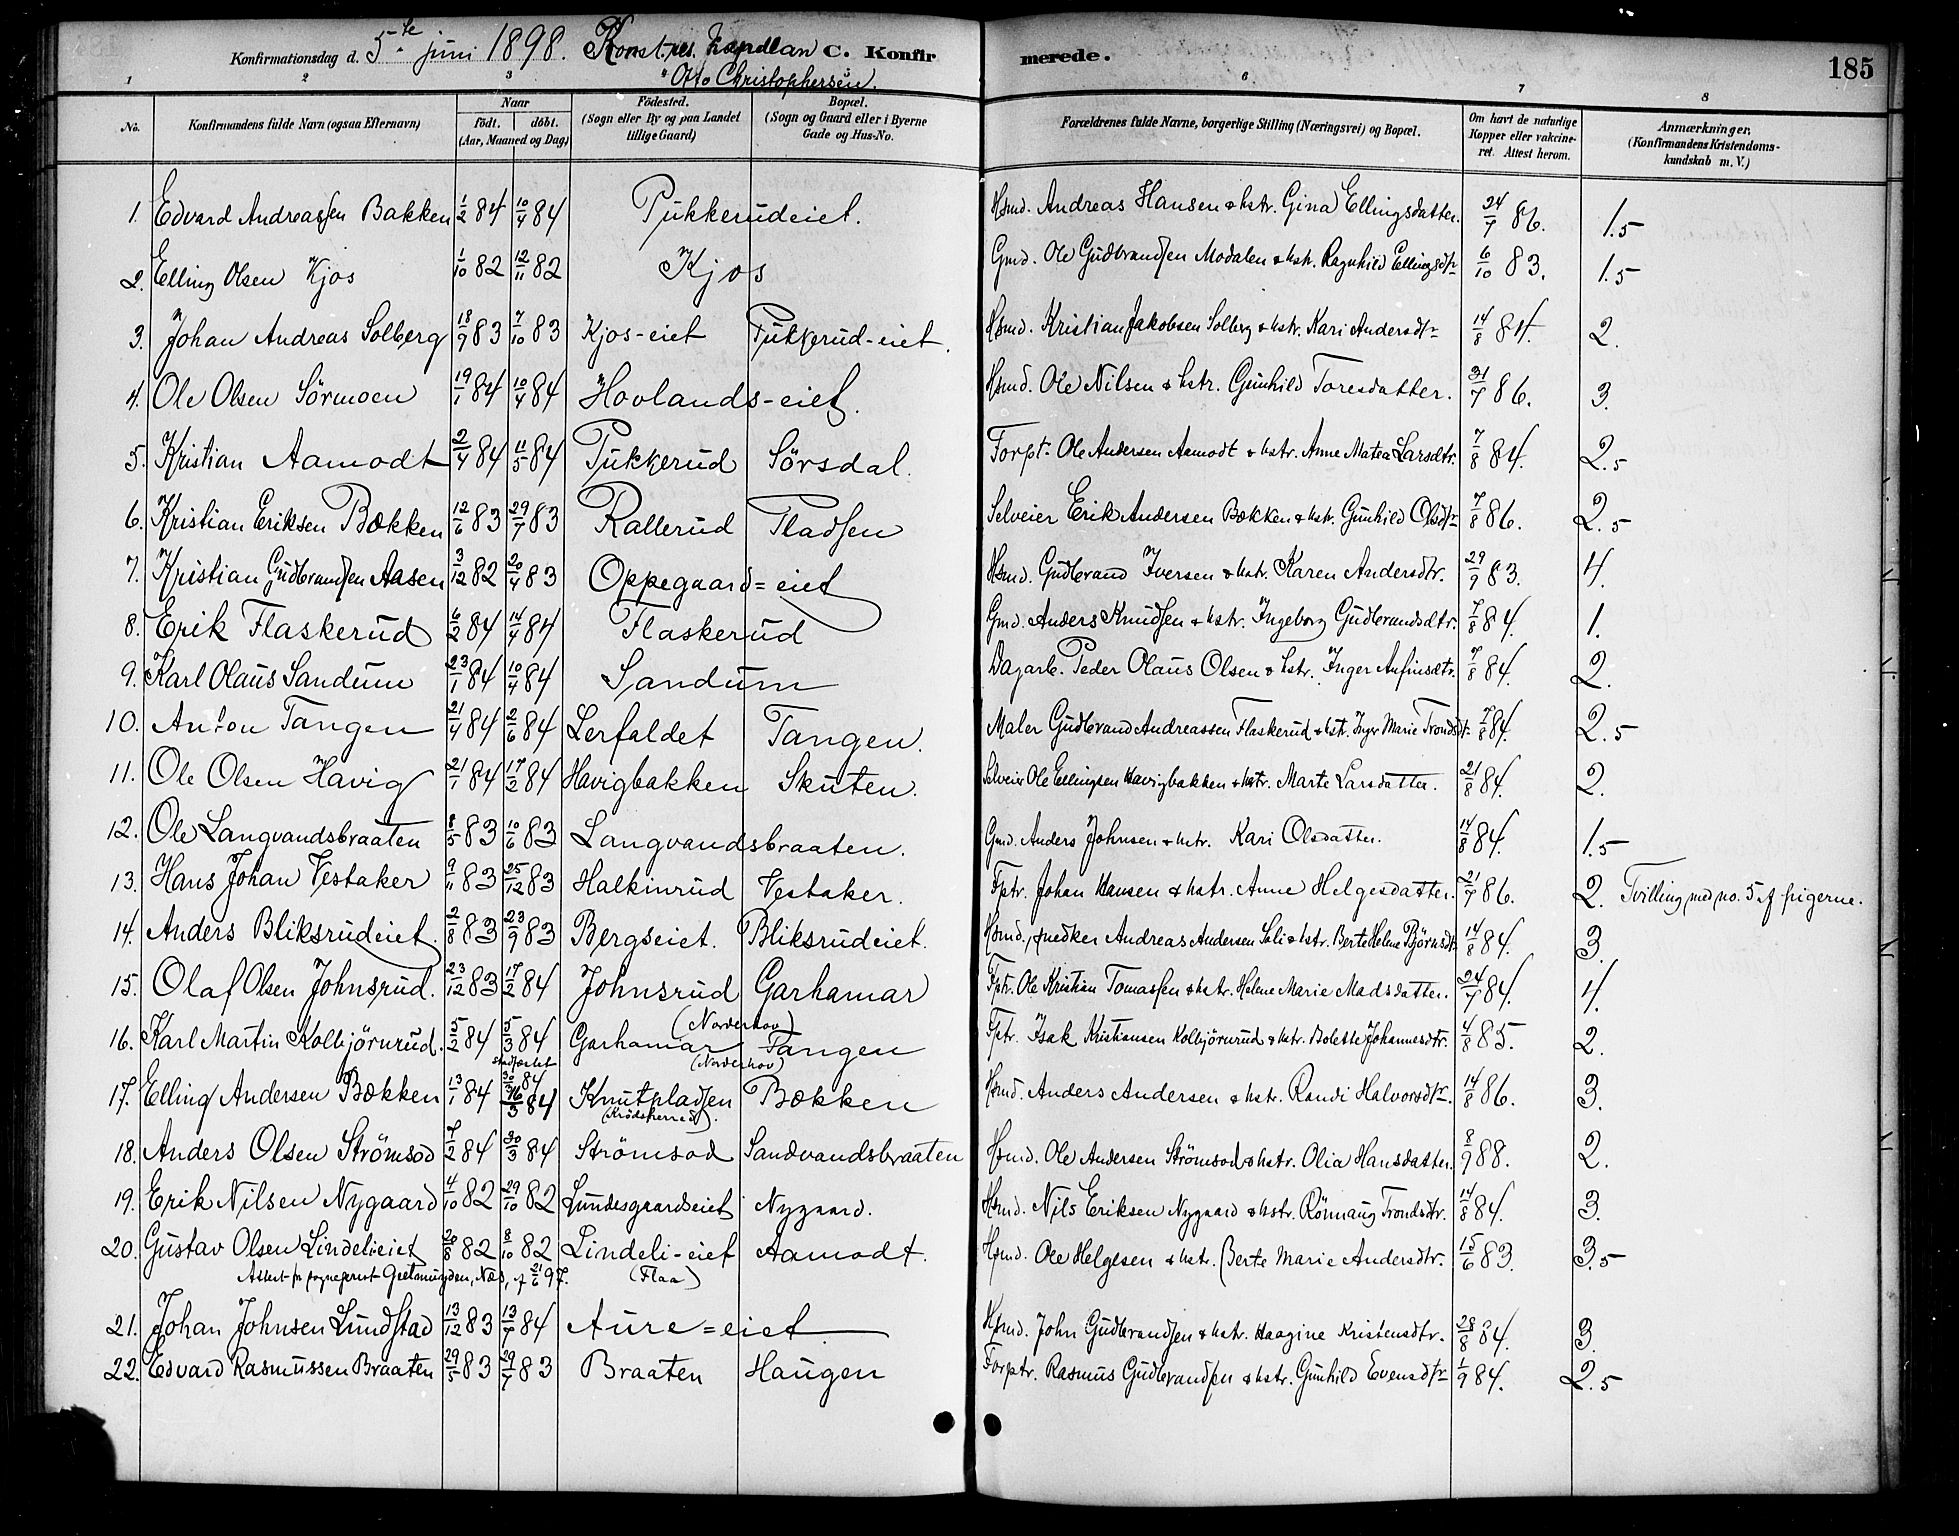 Konfirmationsdag d. 5te juni 1898. Konst. res. kapellan C. Konfir merede. 185
Otto Christophersen.
1 2 3 6 7 8
No. Konfirmandens fulde Navn (ogsaa Efternavn) Naar født. døbt. (Aar, Maaned og Dag) Fødested. (Sogn eller By og paa Landet tillige Gaard) Bopæl. (Sogn og Gaard eller i Byerne Gade og Hus-No. Forældrenes fulde Navne, borgerlige Stilling (Næringsvei) og Bopæl. Om havt de naturlige Kopper eller vakcineret. Attest herom. Anmærkninger. (Konfirmandens Kristendomskundskab m. V.)
1. Edvard Andreassen Bakken 1/2 84 10/4 84 Pukkerudeiet. Hsmd. Andreas Hansen & hstr. Gina Ellingsdatter. 24/7 86. 1.5
2. Elling Olsen Kjos 1/10 82 12/11 82 Kjos Gmd. Ole Gudbrandsen Modalen & hstr. Ragnhild Ellingsdtr 6/10 83. 1.5
3. Johan Andreas Solberg 18/9 83 7/10 83 Kjos-eiet Pukkerud-eiet. Hsmd. Kristian Jakobsen Solberg & hstr. Kari Andersdtr 14/8 84. 2.
4. Ole Olsen Sörmoen 19/1 84 10/4 84 Hovlands-eiet. Hsmd. Ole Nilsen & hstr. Gunhild Toresdatter. 31/7 86. 3.
5. Kristian Aamodt 2/4 84 11/5 84 Pukkerud Sörsdal. Forpt. Ole Andersen Aamodt & hstr. Anne Matea Larsdtr. 7/8 84. 2.5
6. Kristian Eriksen Bækken 12/6 83 29/7 83 Rallerud Pladsen Selveier Erik Andersen Bækken & hstr. Gunhild Olsdtr 7/8 86. 2.5
7. Kristian Gudbrandsen Aasen 3/12 82 20/4 83 Oppegaard=eiet Hsmd. Gudbrand Iversen & hstr. Karen Andersdtr. 29/9 83. 4.
8. Erik Flaskerud 6/2 84 14/4 84 Flaskerud Gmd. Anders Knudsen & hstr. Ingeborg Gudbrandsdtr. 7/8 84. 1.
9. Karl Olaus Sandum 23/1 84 10/4 84 Sandum Dagarb. Peder Olaus Olsen & hstr. Inger Anfinsdtr. 7/8 84. 2.
10. Anton Tangen 21/4 84 2/6 84 Lerfaldet Tangen. Maler Gudbrand Andreassen Flaskerud & hstr. Inger Marie Trondsdtr 7/8 84. 2.5
11. Ole Olsen Havig 21/1 84 17/2 84 Havigbakken Skuten. Selveier Ole Ellingsen Havigbakken & hstr. Marte Larsdatter. 21/8 84. 2.
12. Ole Langvandsbraaten 8/5 83 10/6 83 Langvandsbraaten. Gmd. Anders Johnsen & hstr. Kari Olsdatter. 14/8 84. 1.5
13. Hans Johan Vestaker 9/11 83 25/12 83 Halkinrud Vestaker. Fptr. Johan Hansen & hstr. Anne Helgesdatter. 21/7 86. 2. Tvilling med no. 5 af pigerne.
14. Anders Bliksrudeiet. 2/8 83 23/9 83 Bergseiet. Bliksrudeiet. Hsmd., snedker Andreas Andersen Seli & hstr. Berte Helene Björnsdtr 14/8 84. 3.
15. Olaf Olsen Johnsrud. 23/12 83 17/2 84 Johnsrud Garhamar Fptr. Ole Kristian Tomassen & hstr. Helene Marie Madsdatter. 24/7 84. 4.
(Norderhov)
16. Karl Martin Kolbjörnrud. 5/2 84 5/3 84 Garhamar Tangen Fptr. Isak Kristiansen Kolbjörnrud & hstr. Bolette Johannesdtr. 4/8 85. 2.
stadfæstet (Norderhov)
30/3 84
17. Elling Andersen Bækken 13/1 84 16/3 84 Knutpladsen Bækken Hsmd. Anders Andersen & hstr. Randi Halvorsdtr. 14/8 86. 3.
(Krödsherred).
18. Anders Olsen Strömsod 7/2 84 30/3 84 Strömsod Sandvandsbraaten Hsmd. Ole Andersen Strömsod & hstr. Olia Hansdatter. 8/9 88. 2.
19. Erik Nilsen Nygaard 4/10 82 29/10 82 Lundesgaardseiet Nygaard. Hsmd. Nils Eriksen Nygaard & hstr. Rönnaug Trondsdtr. 14/8 84. 3.
20. Gustav Olsen Lindelieiet 20/8 82 8/10 82 Lindeli-eiet Aamodt. Hsmd. Ole Helgesen & hstr. Berte Marie Andersdtr. 15/6 83. 3.5
Attest fr sogneprest Geelmuyden, Næs, af 21/6 97. (Flaa)
21. Johan Johnsen Lundstad 13/12 83 13/7 84 Aure=eiet Hsmd. John Gudbrandsen & hstr. Haagine Kristensdtr. 28/8 84. 3.
22. Edvard Rasmussen Braaten 29/5 83 29/7 83 Braaten Haugen Forptr. Rasmus Gudbrandsen & hstr. Gunhild Evensdtr 1/9 84. 2.5